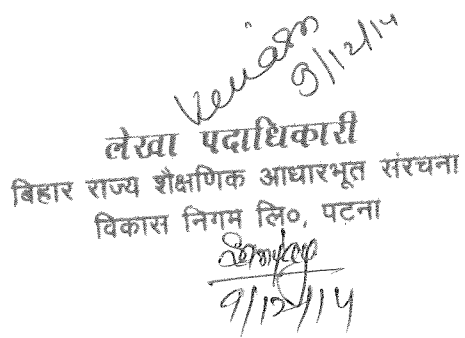 9/12/14
लेखा पदाधिकारी
बिहार राज्य शैक्षणिक आधारभूत संरचना
विकास निगम लि०, पटना
9/12/14